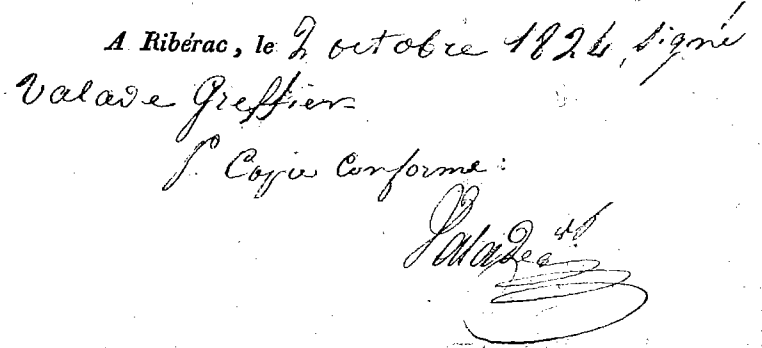 A Ribérac, le 2 octobre 1824, signé
Valade Greffier
P. Copie Conforme:
Valade